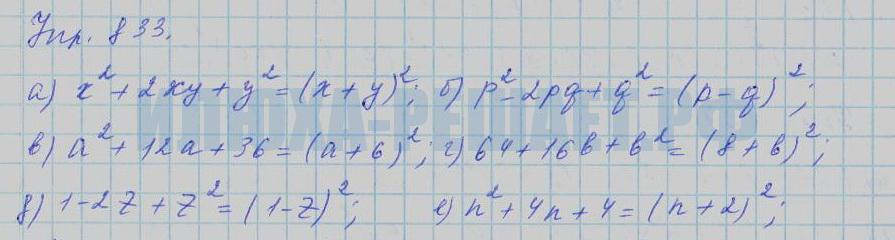 Упр. 833.
а) x² + 2xy + y² = (x + y)²; б) p² - 2pq + q² = (p - q)²;
в) a² + 12a + 36 = (a + 6)²; г) 64 + 16b + b² = (8 + b)²;
д) 1 - 2z + z² = (1 - z)²; е) n² + 4n + 4 = (n + 2)²;
ИЛЮХА-РЕШАЕТ.РФ